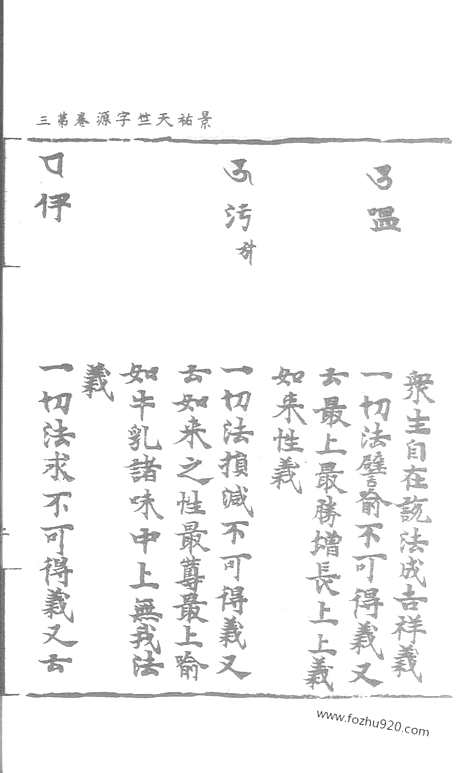 景祐天竺字源卷第三
衆生自在該法成吉祥義
嗢
一切法譬喻不可得義又
云最上最勝增長上上義
如来性義
污
一切法損減不可得義又
云如来之性最尊最上喻
如牛乳諸味中上無我法
義
伊
一切法求不可得義又云
www.fozhu920.com